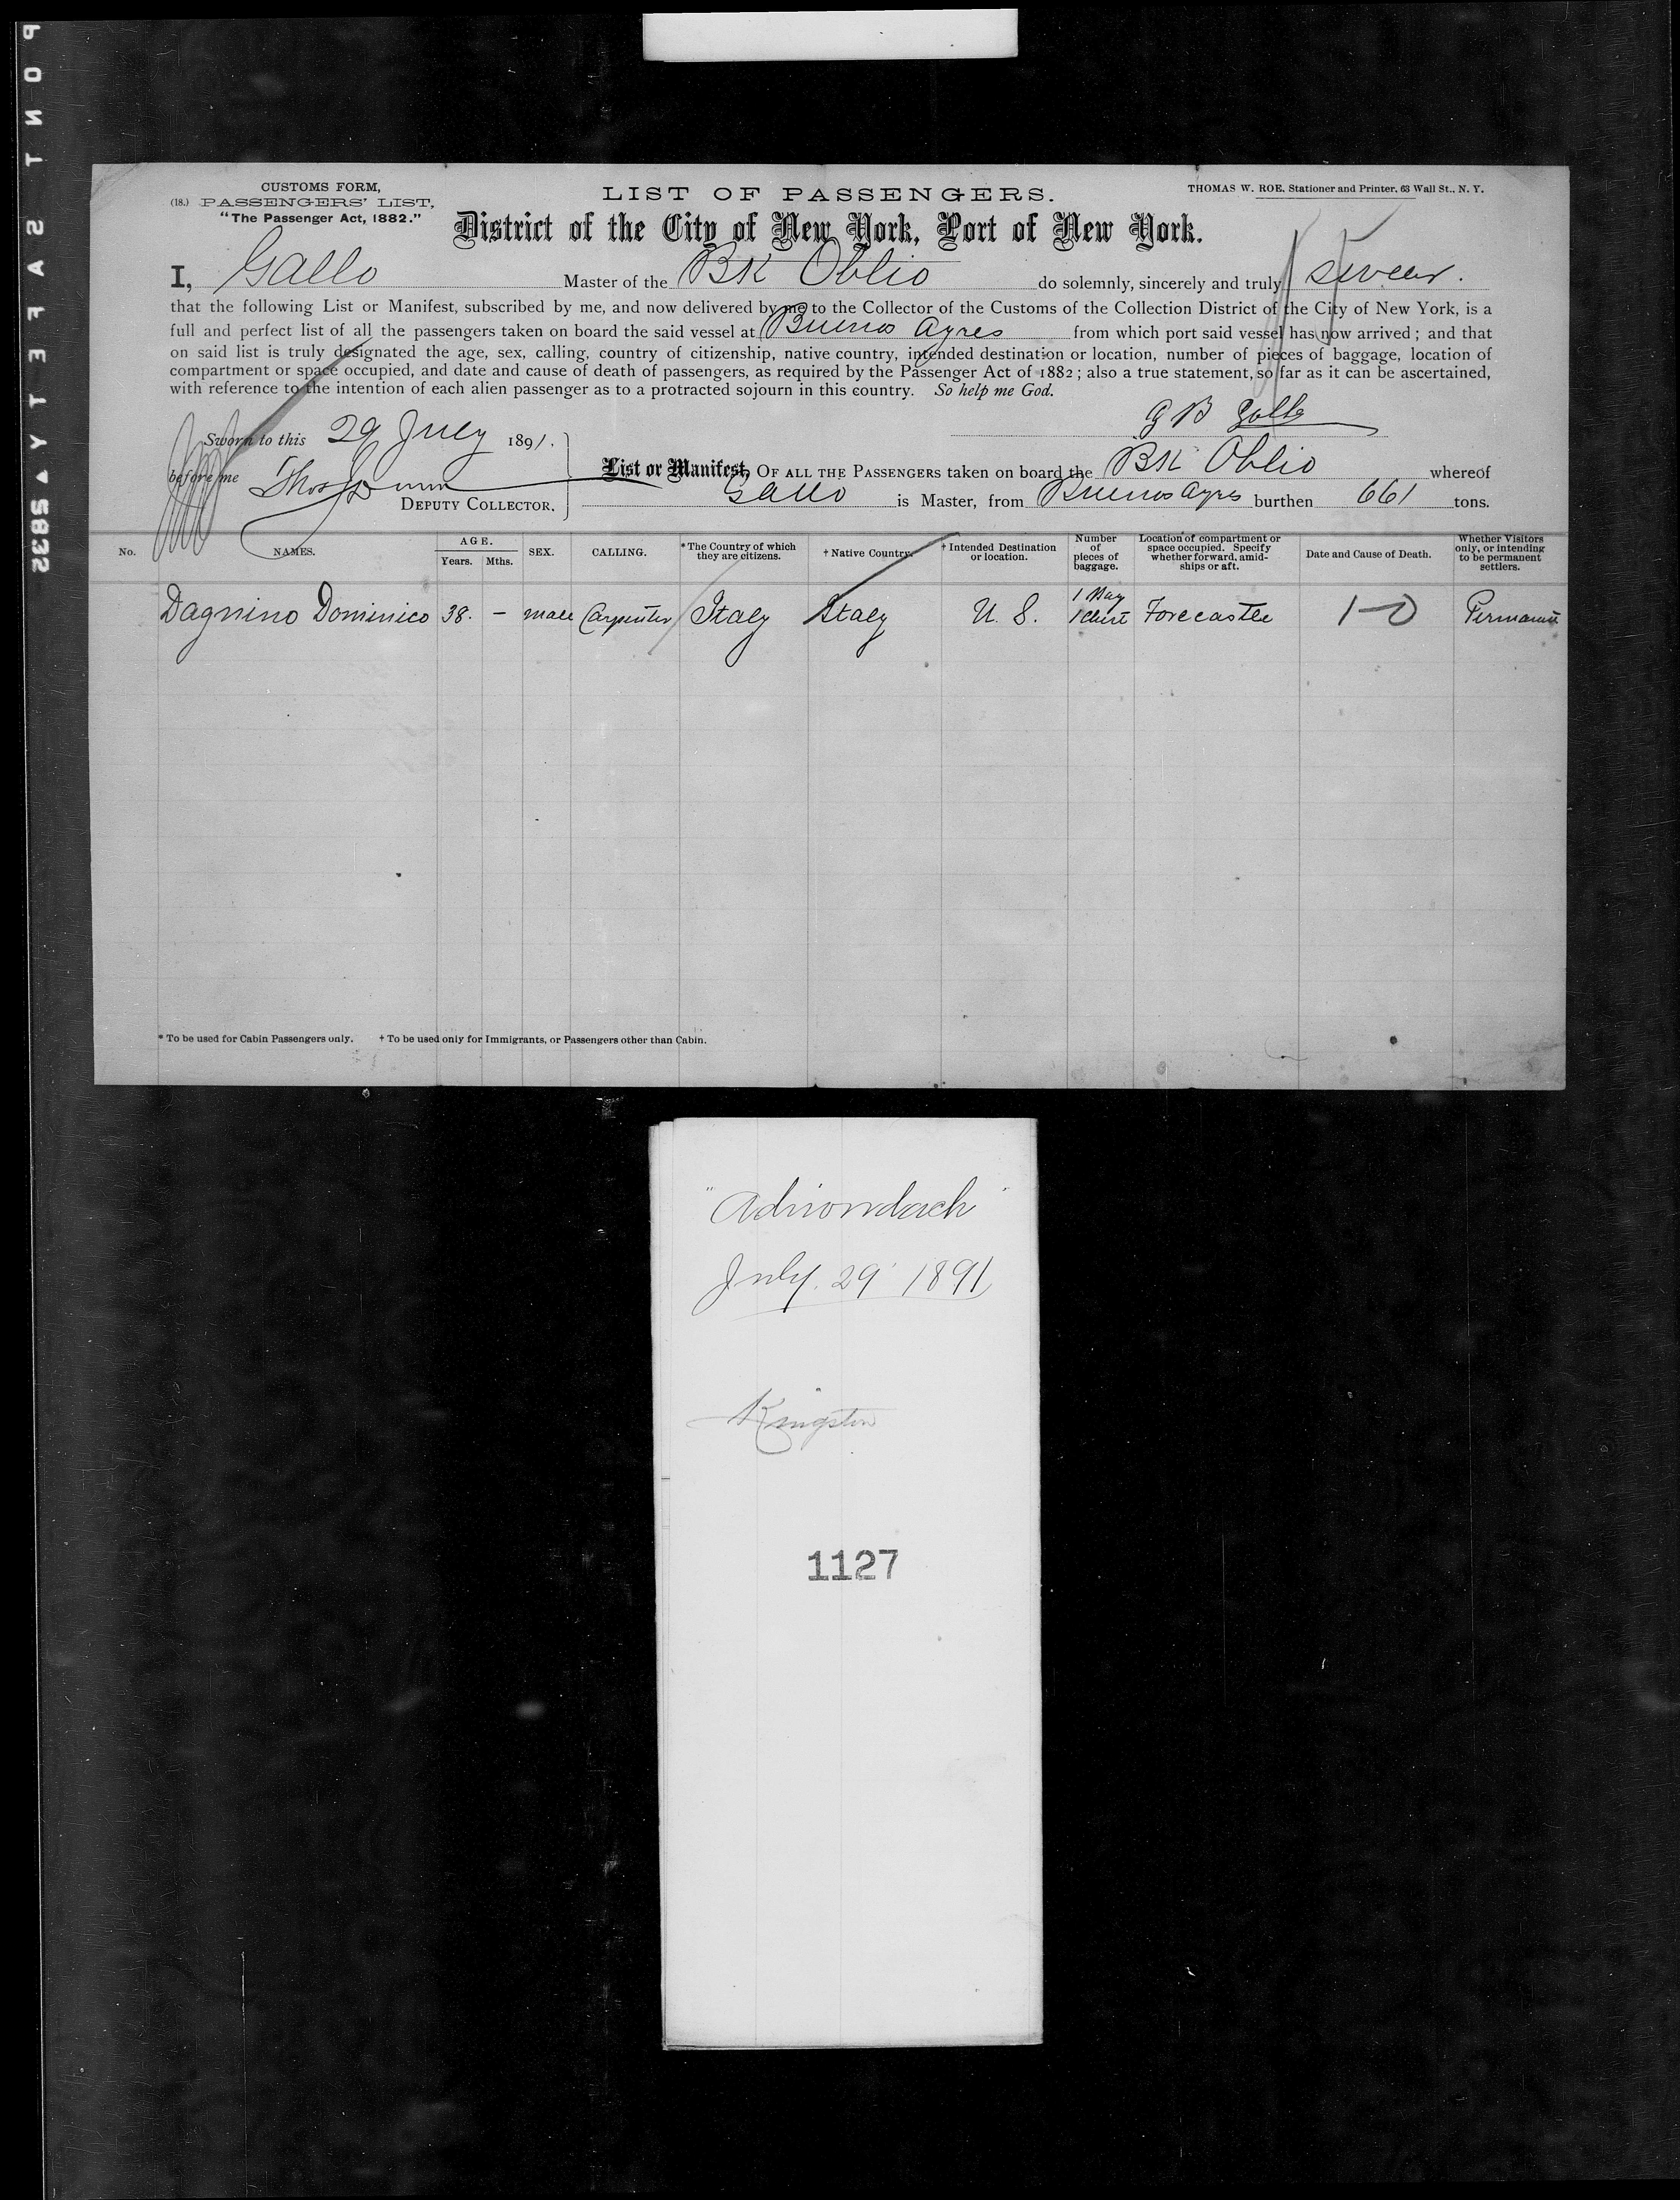 CUSTOMS FORM,
(18.) PASSENGERS' LIST,
"The Passenger Act, 1882."
LIST OF PASSENGERS.
THOMAS W. ROE, Stationer and Printer, 63 Wall St., N. Y.
District of the City of New York, Port of New York.
I, Gallo Master of the Bk Oblio do solemnly, sincerely and truly swear.
that the following List or Manifest, subscribed by me, and now delivered by me to the Collector of the Customs of the Collection District of the City of New York, is a
full and perfect list of all the passengers taken on board the said vessel at Buenos Ayres from which port said vessel has now arrived; and that
on said list is truly designated the age, sex, calling, country of citizenship, native country, intended destination or location, number of pieces of baggage, location of
compartment or space occupied, and date and cause of death of passengers, as required by the Passenger Act of 1882; also a true statement, so far as it can be ascertained,
with reference to the intention of each alien passenger as to a protracted sojourn in this country. So help me God.
G B Gallo
Sworn to this 29 July 1891.
before me Thos
DEPUTY COLLECTOR.
List or Manifest, OF ALL THE PASSENGERS taken on board the Bk Oblio whereof
Gallo is Master, from Buenos Ayres burthen 661 tons.
No. NAMES. AGE. Years. Mths. SEX. CALLING. *The Country of which they are citizens. † Native Country. † Intended Destination or location. Number of pieces of baggage. Location of compartment or space occupied. Specify whether forward, amidships or aft. Date and Cause of Death. Whether Visitors only, or intending to be permanent settlers.
Dagnino Dominico 38. - male Carpenter Italy Italy U. S. 1 Bag 1 Chest Forecastle 1-0 Permanent
* To be used for Cabin Passengers only. † To be used only for Immigrants, or Passengers other than Cabin.
"Adirondack"
July. 29 1891
Kingston
1127